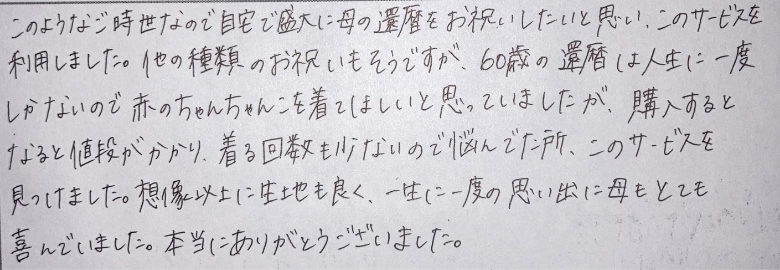 このようなご時世なので自宅で盛大に母の還暦をお祝いしたいと思い、このサービスを
利用しました。他の種類のお祝いもそうですが、60歳の還暦は人生に一度
しかないので赤のちゃんちゃんこを着てほしいと思っていましたが、購入すると
なると値段がかかり、着る回数も少ないので悩んでた所、このサービスを
見つけました。想像以上に生地も良く、一生に一度の思い出に母もとても
喜んでいました。本当にありがとうございました。